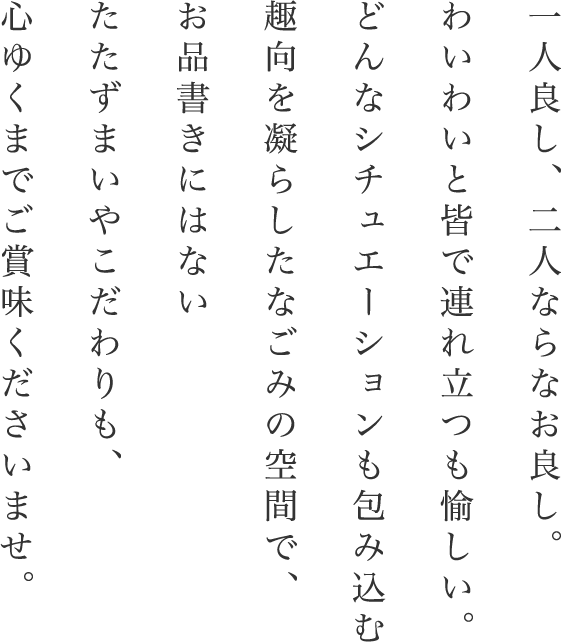 一人良し、二人ならなお良し。
わいわいと皆で連れ立つも愉しい。
どんなシチュエーションも包み込む
趣向を凝らしたなごみの空間で、
お品書きにはない
たたずまいやこだわりも、
心ゆくまでご賞味くださいませ。